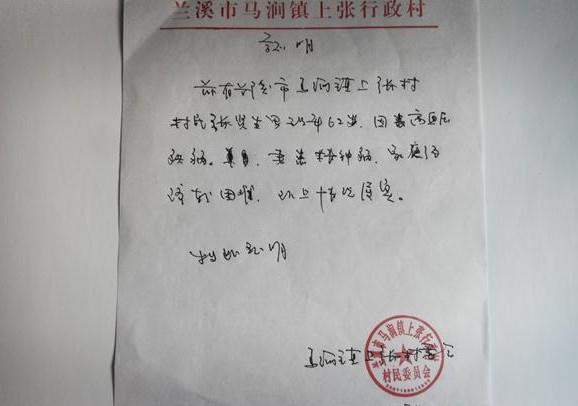 兰溪市马涧镇上张行政村
证明
兹有兰溪市马涧镇上张村
村民张 今年62岁，因患高血压
病。妻患精神病，家庭经
济较困难，以上情况属实。
特此证明
马涧镇上张村委会
兰溪市马涧镇上张行政村
村民委员会